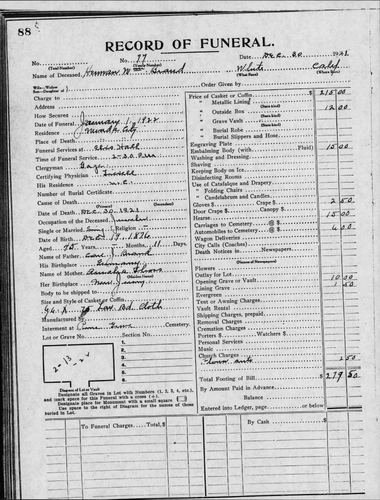 88
RECORD OF FUNERAL.
No. No. 77 Date Dec 30 1921
(Total Number) (Yearly Number)
Name of Deceased Herman W Brand White Calif
(What Race) (Where Born)
Wife-Widow
Son-Daughter of
Order Given by
Charge to
Address
How Secured
Date of Funeral January 1 1922
Residence Nevada City
Place of Death
Funeral Services at Elks Hall
Time of Funeral Service 2-30 P.m
Clergyman
Certifying Physician
His Residence N.C.
Number of Burial Certificate
Cause of Death
Date of Death Dec 30 1921
Occupation of the Deceased
Single or Married Religion
Date of Birth Dec 19 1876
Aged 45 Years Months 11 Days
Name of Father Carl J Brand
His Birthplace Germany
Name of Mother
(Maiden Name)
Her Birthplace New Jersey
Body to be shipped to
Size and Style of Casket or Coffin
Cloth
Manufactured by
Interment at Pine Grove Cemetery.
Lot or Grave No. Section No.
1
2
3
4
5
6
Diagram of Lot or Vault
Designate all Graves in Lot with Numbers (1, 2, 3, 4, etc.), and mark space for this Funeral with a cross (+).
Designate place for Monument with a small square
Use space to right of Diagram for the names of those buried in Lot.
Price of Casket or Coffin 215 00
" Metallic Lining
(State kind)
" Outside Box 12 00
(State kind)
" Grave Vault
(State kind)
" Burial Robe
(State kind)
" Burial Slippers and Hose
Engraving Plate
Embalming Body (with Fluid) 15 00
Washing and Dressing
Shaving
Keeping Body on Ice
Disinfecting Rooms
Use of Catafalque and Drapery
" Folding Chairs
" Candelabrum and Candles
Gloves $ Door Crape $ 2 50
Hearse 15 00
Carriages to Cemetery @ $
Automobiles to Cemetery @ $ 6 00
Wagon Deliveries
City Calls (Coaches)
Death Notices in Newspapers
Flowers
Outlay for Lot
Opening Grave or Vault 10 00
Lining Grave 1 50
Evergreen
Tent or Awning
Vault Rental
Shipping Charges, prepaid
Removal Charges
Cremation Charges
Porters $ Watchers $
Personal Services
Music
Church Charges
Flower auto 2 50
Total Footing of Bill $ 279 50
By Amount Paid in Advance
Balance
Entered into Ledger, page or below.
To Funeral Charges Total, $
By Cash $